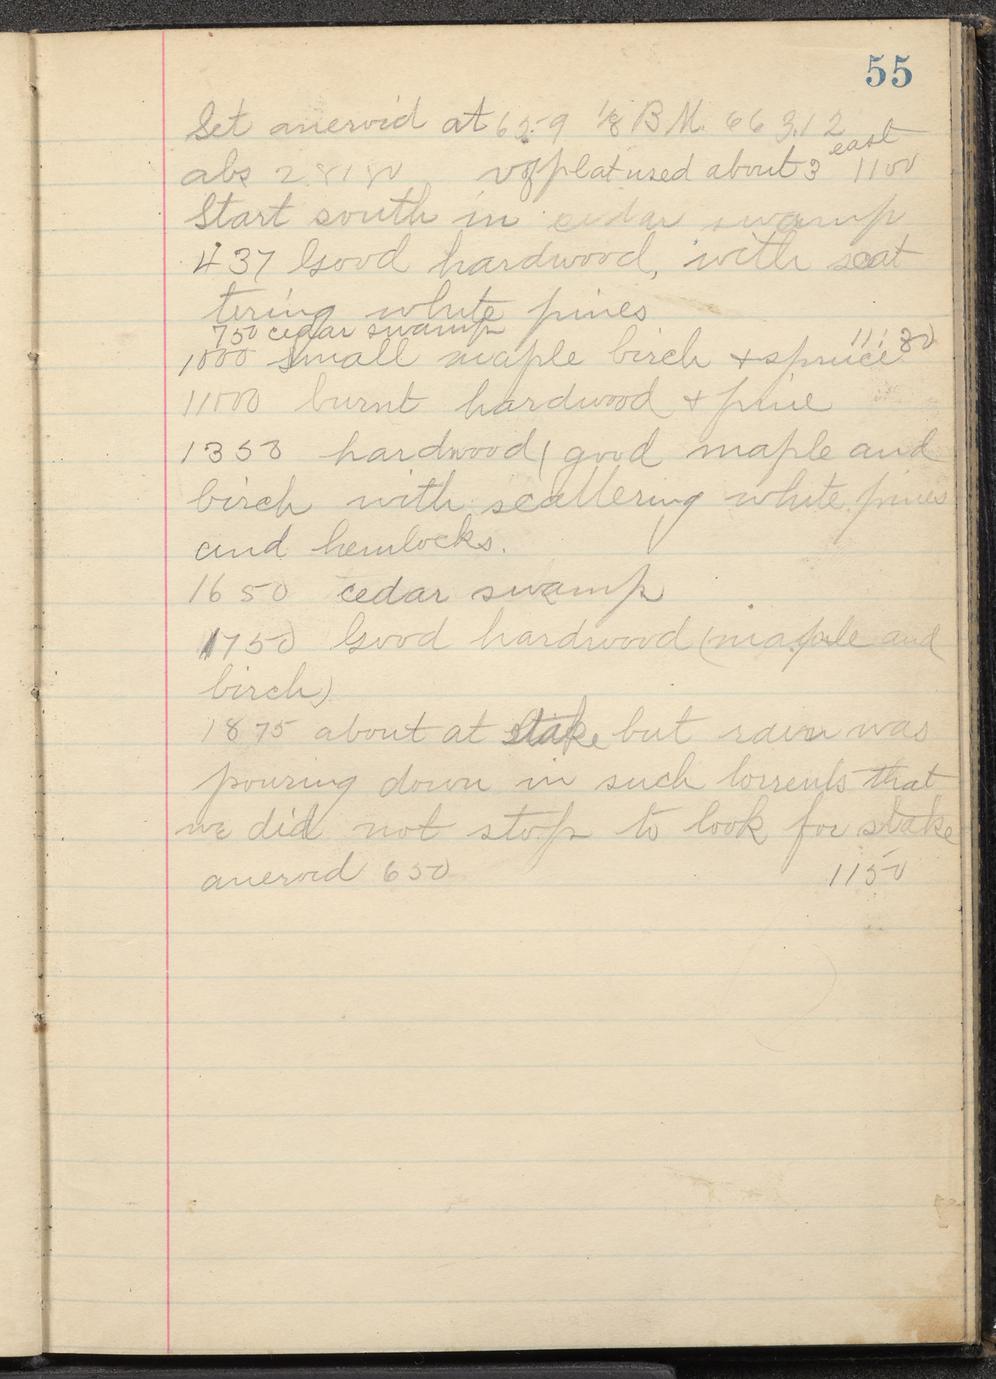 55
Set aneroid at 659 1/8 B M. 663.12
abs 28180 of plat used about 3 east 1100
Start south in cedar swamp
437 Good hardwood, with scat
tering white pines
750 cedar swamp
1000 small maple birch + spruce 11:30
11000 burnt hardwood + pine
1353 hardwood ( good maple and
birch with scattering white pines
and hemlocks.
1650 cedar swamp
1750 Good hardwood (maple and
birch)
1875 about at stake but rain was
pouring down in such torrents that
we did not stop to look for stake
aneroid 650 1150